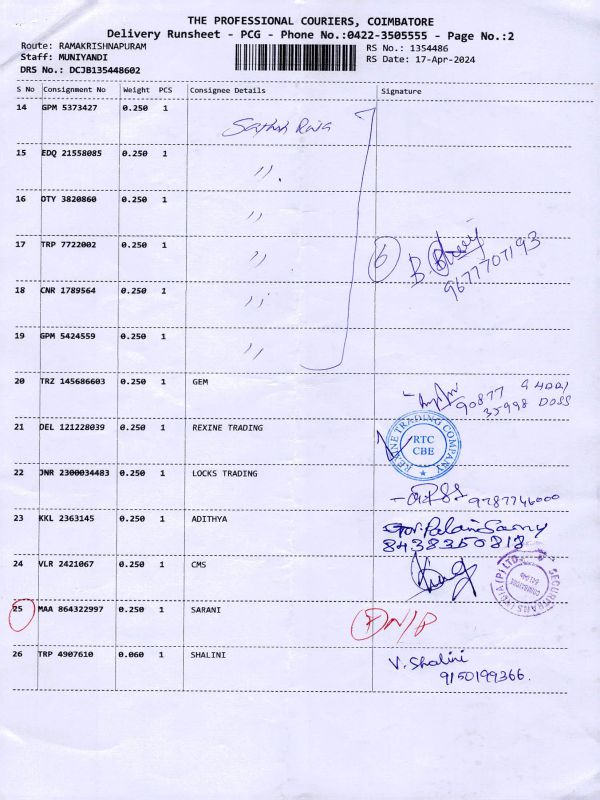 THE PROFESSIONAL COURIERS, COIMBATORE
Delivery Runsheet - PCG - Phone No.:0422-3505555 - Page No.:2
Route: RAMAKRISHNAPURAM
RS No.: 1354486
Staff: MUNIYANDI
RS Date: 17-Apr-2024
DRS No.: DCJB135448602
S No Consignment No Weight PCS Consignee Details Signature
14 GPM 5373427 0.250 1
15 EDQ 21558085 0.250 1 〃
16 OTY 3820860 0.250 1 〃
17 TRP 7722002 0.250 1 〃
6 B.
9677707193
18 CNR 1789564 0.250 1 〃
19 GPM 5424559 0.250 1 〃
20 TRZ 145686603 0.250 1 GEM
90877
35998 DOSS
21 DEL 121228039 0.250 1 REXINE TRADING
REXINE TRADING COMPANY
RTC
CBE
22 JNR 2300034483 0.250 1 LOCKS TRADING
9787746000
23 KKL 2363145 0.250 1 ADITHYA
Gov.PalaniSamy
8438350818
24 VLR 2421067 0.250 1 CMS
SECURITRANS INDIA (P) LTD.
25 MAA 864322997 0.250 1 SARANI
N/P
26 TRP 4907610 0.060 1 SHALINI
V. Shalini
9150199366.